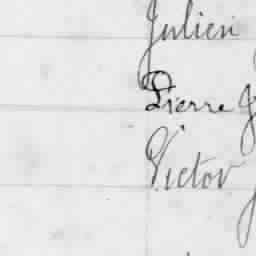 Julien
Pierre J
Victor